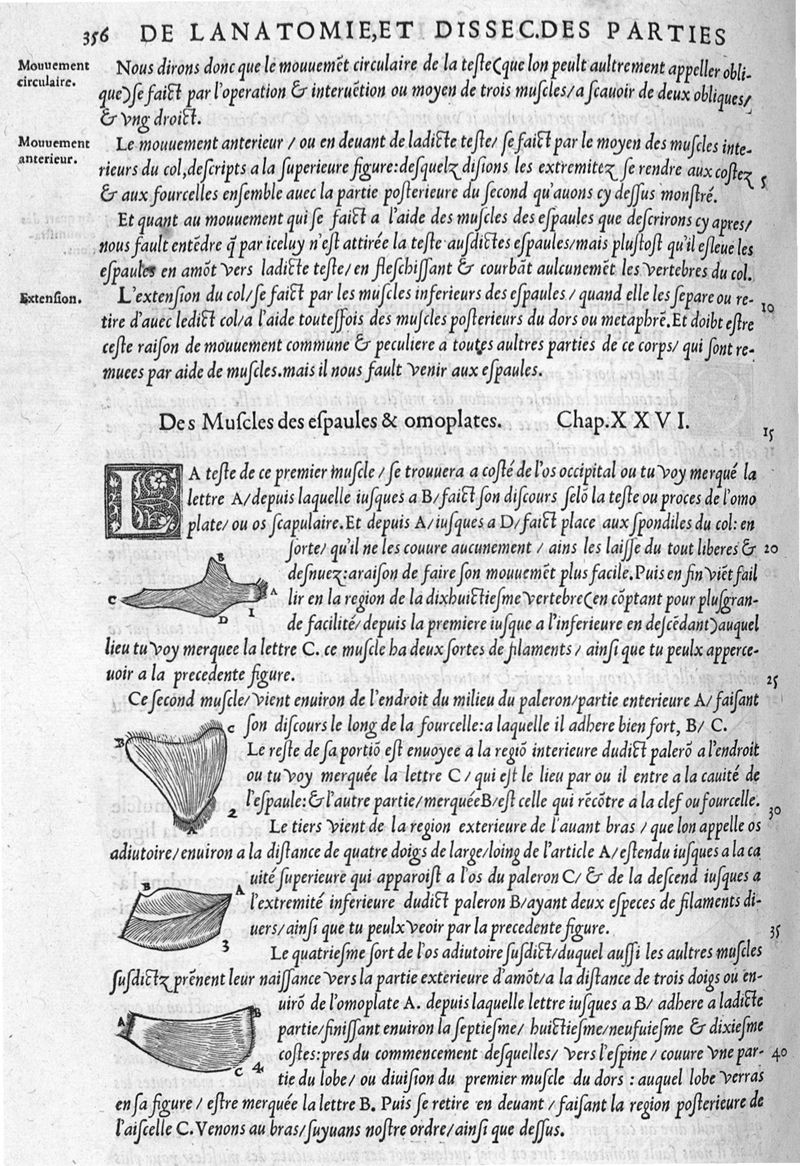 356 DE LANATOMIE, ET DISSEC. DES PARTIES
Mouuement
circulaire.
Nous dirons donc que le mouuemēt circulaire de la teste (que lon peult aultrement appeller obli-
que) se faict par l'operation & interuētion ou moyen de trois muscles / a scauoir de deux obliques /
& vng droict.
Mouuement
anterieur.
Le mouuement anterieur / ou en deuant de ladicte teste / se faict par le moyen des muscles inte-
rieurs du col, descripts a la superieure figure: desquelz disions les extremitez se rendre aux costez
5
& aux fourcelles ensemble auec la partie posterieure du second qu'auons cy dessus monstré.
Et quant au mouuement qui se faict a l'aide des muscles des espaules que descrirons cy apres /
nous fault entēdre q̄ par iceluy n'est attirée la teste ausdictes espaules / mais plustost qu'il esleue les
espaules en amōt vers ladicte teste / en fleschissant & courbāt aulcunemēt les vertebres du col.
Extension.
L'extension du col / se faict par les muscles inferieurs des espaules / quand elle les separe ou re-
10
tire d'auec ledict col / a l'aide toutessois des muscles posterieurs du dors ou metaphrē. Et doibt estre
ceste raison de mouuement commune & peculiere a toutes aultres parties de ce corps / qui sont re-
muees par aide de muscles. mais il nous fault venir aux espaules.
Des Muscles des espaules & omoplates. Chap. XXVI.
15
LA teste de ce premier muscle / se trouuera a costé de l'os occipital ou tu voy merqué la
lettre A / depuis laquelle iusques a B / faict son discours selō la teste ou proces de l'omo
plate / ou os scapulaire. Et depuis A / iusques a D / faict place aux spondiles du col: en
sorte / qu'il ne les couure aucunement / ains les laisse du tout liberes &
20
desnuez: a raison de faire son mouuemēt plus facile. Puis en fin viēt fail
lir en la region de la dixhuictiesme vertebre (en cōptant pour plusgran-
de facilité / depuis la premiere iusque a l'inferieure en descēdant) auquel
B
C
A
D
1
lieu tu voy merquee la lettre C. ce muscle ha deux sortes de filaments / ainsi que tu peulx apperce-
uoir a la precedente figure.
25
Ce second muscle / vient enuiron de l'endroit du milieu du paleron / partie enterieure A / faisant
son discours le long de la fourcelle: a laquelle il adhere bien fort, B / C.
Le reste de sa portiō est enuoyee a la regiō interieure dudict palerō a l'endroit
ou tu voy merquée la lettre C / qui est le lieu par ou il entre a la cauité de
l'espaule: & l'autre partie / merquée B / est celle qui rēcōtre a la clef ou fourcelle.
30
B
C
A
2
Le tiers vient de la region exterieure de l'auant bras / que lon appelle os
adiutoire / enuiron a la distance de quatre doigs de large / loing de l'article A / estendu iusques a la ca
uité superieure qui apparoist a l'os du paleron C / & de la descend iusques a
l'extremité inferieure dudict paleron B / ayant deux especes de filaments di-
uers / ainsi que tu peulx veoir par la precedente figure.
35
B
A
3
Le quatriesme sort de l'os adiutoire susdict / duquel aussi les aultres muscles
susdictz prēnent leur naissance vers la partie exterieure d'amōt / a la distance de trois doigs ou en-
uirō de l'omoplate A. depuis laquelle lettre iusques a B / adhere a ladicte
partie / finissant enuiron la septiesme / huictiesme / neufuiesme & dixiesme
costes: pres du commencement desquelles / vers l'espine / couure vne par-
40
tie du lobe / ou diuision du premier muscle du dors : auquel lobe verras
A
B
C
4
en sa figure / estre merquée la lettre B. Puis se retire en deuant / faisant la region posterieure de
l'aiscelle C. Venons au bras / suyuans nostre ordre / ainsi que dessus.